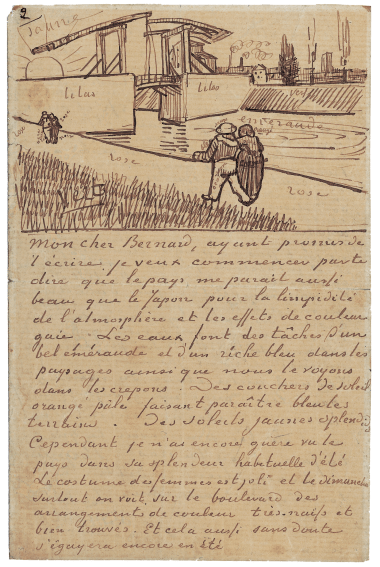 2
jaune
lilas
lilas
vert
emeraude
rose
rose
rose
vert
Mon cher Bernard, ayant promis de
t'écrire je veux commencer par te
dire que le pays me parait aussi
beau que le Japon pour la limpidité
de l'atmosphère et les effets de couleur
gaie. Les eaux font des tâches d'un
bel éméraude et d'un riche bleu dans les
paysages ainsi que nous le voyons
dans les crepons. Des couchers de soleil
orangé pâle faisant paraître bleu les
terrains. Des soleils jaunes splendides
Cependant je n'ai encore guère vu le
pays dans sa splendeur habituelle d'été
Le costume des femmes est joli et le dimanche
surtout on voit sur le boulevard des
arrangements de couleur très naifs et
bien trouvés. Et cela aussi sans doute
s'égayera encore en été